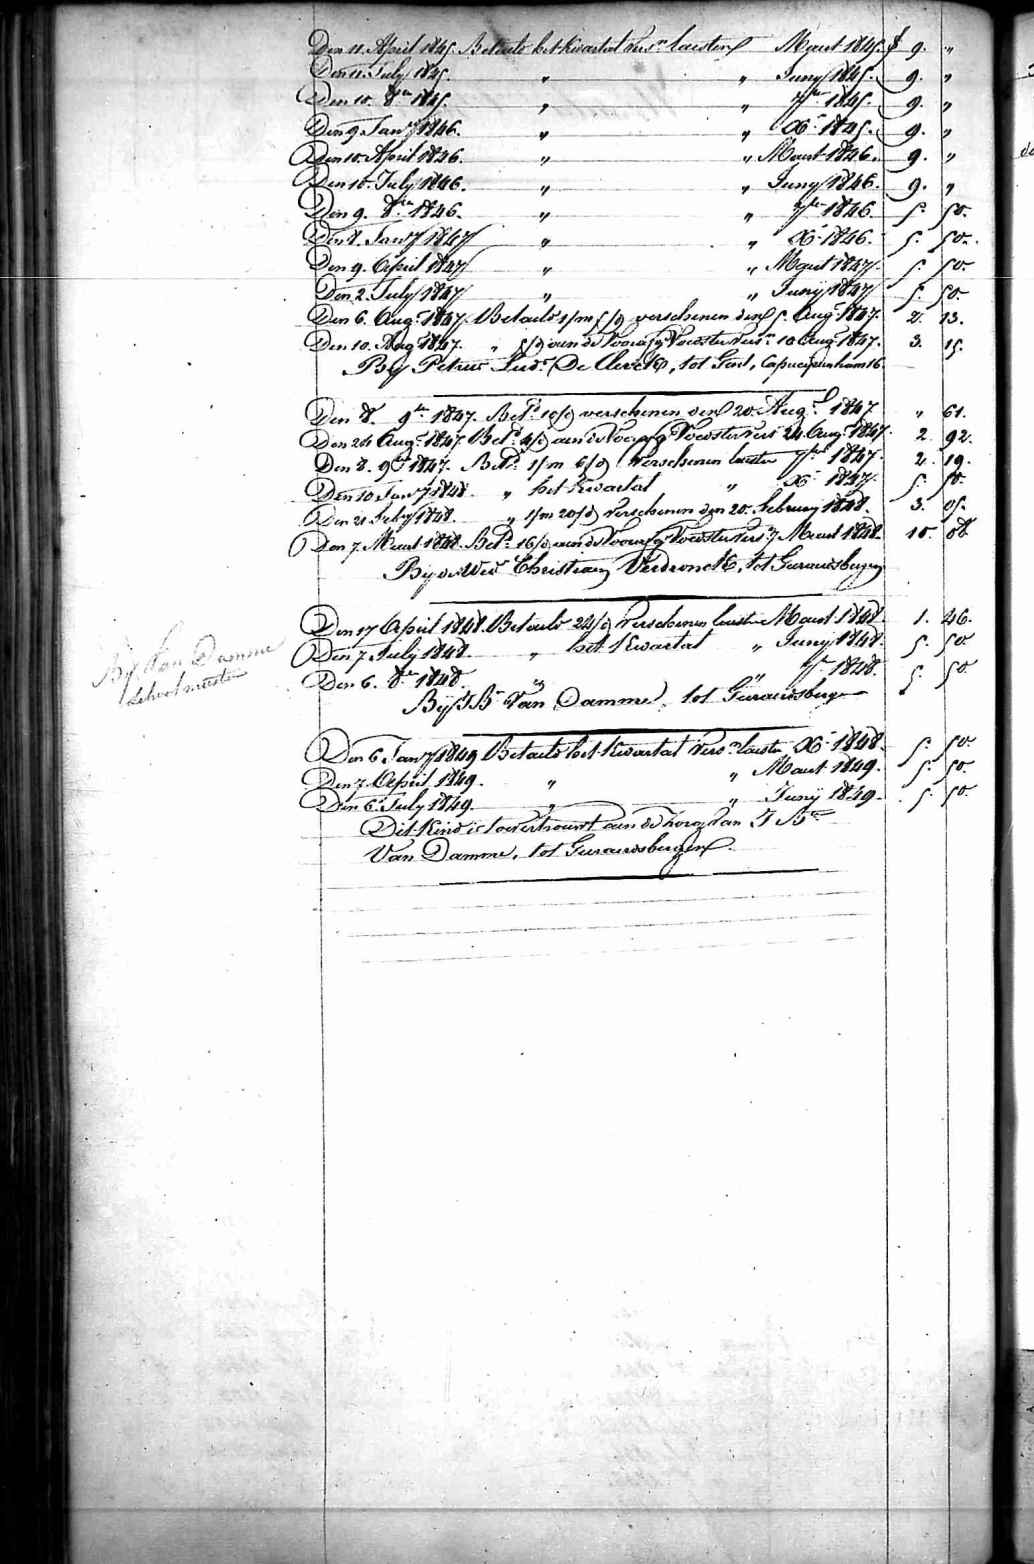 Den 11. April 1845. Betaald het kwartaal vers.n laesten Maart 1845. f 9. "
Den 11. July 1845. " " Juny 1845. 9. "
Den 10. 8bre 1845. " " 7bre 1845. 9. "
Den 9. Janry 1846. " " Xbr 1845. 9. "
Den 10. April 1846. " " Maart 1846. 9. "
Den 10. July 1846. " " Juny 1846. 9. "
Den 9. 8bre 1846. " " 7bre 1846. 5. 50.
Den 8. Janry 1847 " " Xbr 1846. 5. 50.
Den 9. April 1847 " " Maart 1847. 5. 50.
Den 2. July 1847 " " Juny 1847 5. 50.
Den 6. Augt 1847. Betaald 1/m 5/d verschenen den 5. Augt 1847. 2. 13.
Den 10. Aug 1847. " 5/d aan de Voorsg Voedster vers.n 10 Augt 1847. 3. 15.
By Petrus Lud. De Clerck, tot Gend, Capucijnenham 16
Den 8. 9bre 1847. Bet.d 10/d verschenen den 20. Augt 1847 " 61.
Den 24 Augt 1847. Bet.d 4/d aan de Voorsg Voedster vers 24. Augt 1847. 2 92.
Den 8. 9bre 1847. Bet.d 1/m 6/d Verschenen laesten 7bre 1847. 2. 19.
Den 10 Janry 1848. " het kwartaal " Xbr 1847. 5. 50.
Den 21 Febry 1848. " 1/m 20/d verschenen den 20. February 1848. 3. 05.
Den 7. Maart 1848. Bet.d 16/d aan de Voorsg Voedster vers. 7 Maart 1848. 10. 08.
By de Wed.e Christiaen Verdonck, tot Geeraerdsbergen
Den 17 April 1848. Betaald 24/d Verschenen laesten Maart 1848. 1. 46.
Den 7 July 1848. " het kwartaal " Juny 1848. 5. 50
Den 6. 8bre 1848. " " 7br 1848. 5. 50
By J. B.te Van Damme, tot Geeraerdsbergen
By Van Damme
Schoolmeester
Den 6 Janry 1849 Betaald het kwartaal vers.n laesten Xbr 1848. 5. 50.
Den 7. April 1849. " " Maart 1849. 5. 50.
Den 6. July 1849. " " Juny 1849. 5. 50.
Dit kind is toevertrouwt aan de zorg van J. B.te
Van Damme, tot Geeraerdsbergen.